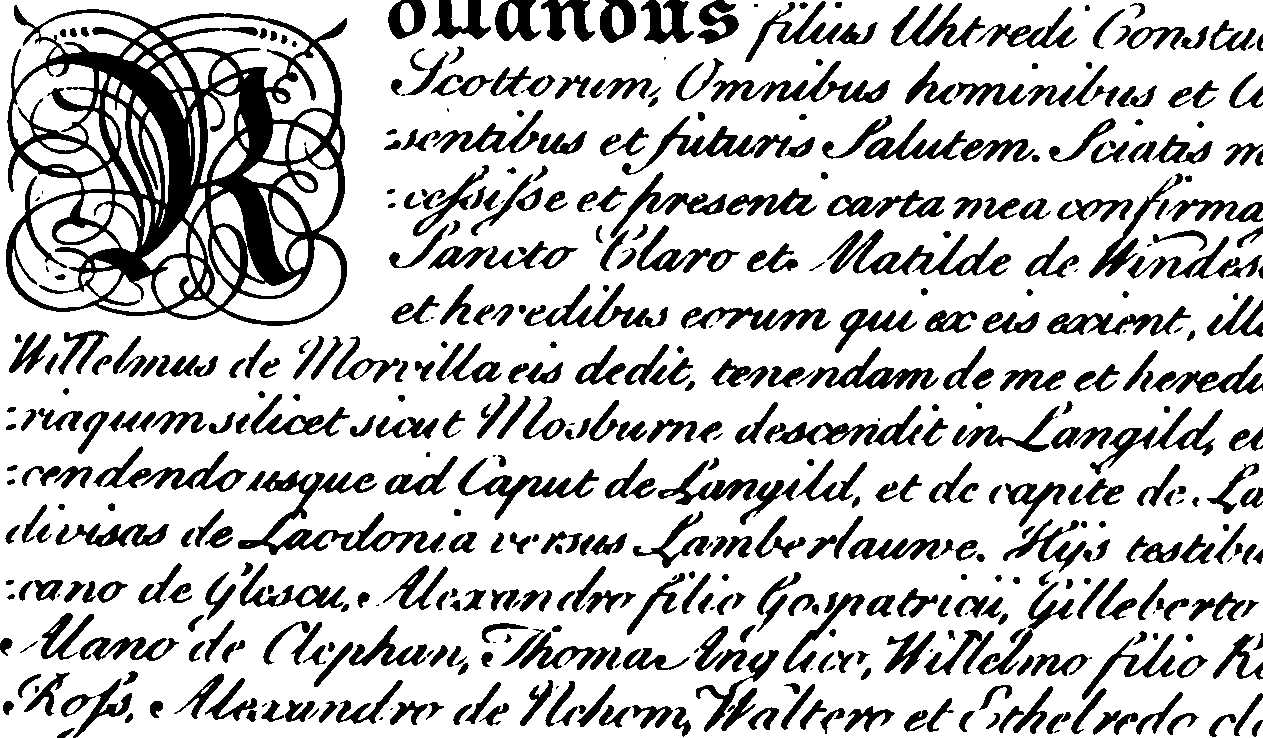 Rollandus filius Uhtredi Constu
Scottorum, Omnibus hominibus et
=sentibus et futuris Salutem. Sciatis m
:cefsifse et presenti carta mea confirma
Sancto Claro et Matilde de Windes
et heredibus eorum qui ex eis exient, ill
Willelmus de Morvilla eis dedit, tenendam de me et heredi
:riaquum silicet sicut Mosburne descendit in Langild, et
:cendendo usque ad Caput de Langild, et de capite de La
divisas de Laodonia versus Lamberlauwe. Hijs testibu
:cano de Glescu, Alexandro filio Gospatricii, Gilleberto
Alano de Clephan, Thoma Anglico, Willelmo filio
Rofs, Alexandro de Nehom, Waltero et Ethelredo cle